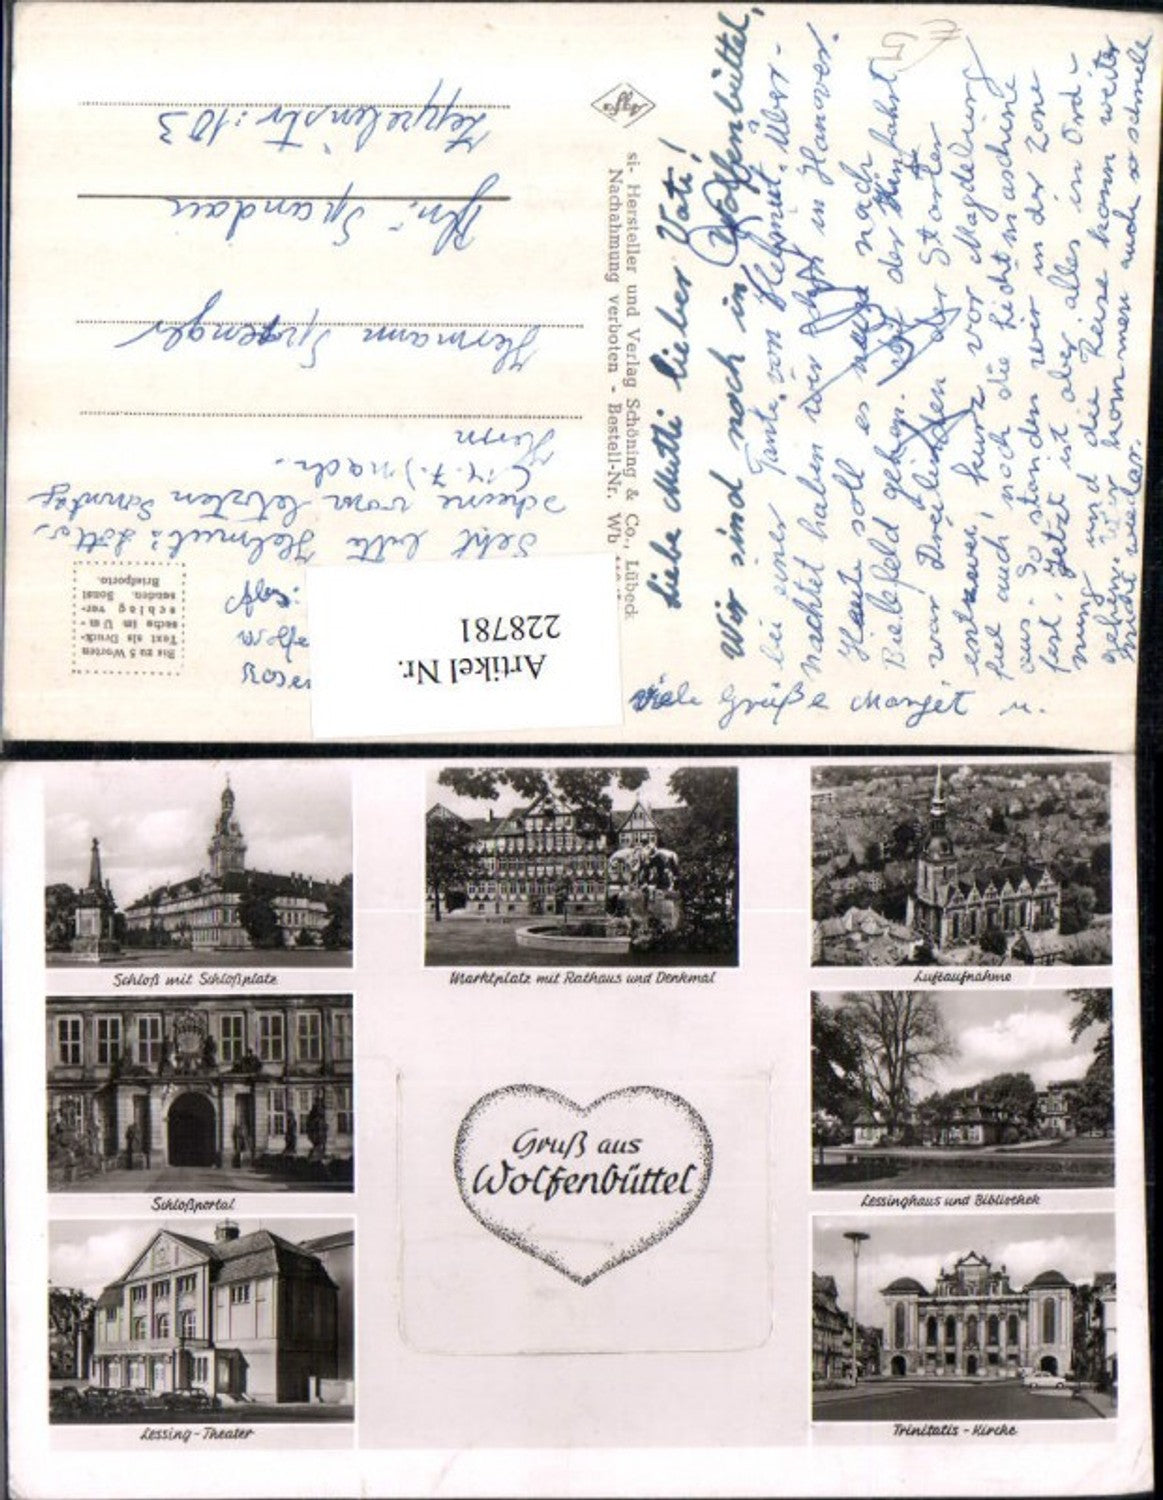 Liebe Mutti lieber Vati!
Wir sind noch in Wolfenbüttel,
bei einer Tante von Helmut. Über-
nachtet haben wir in Hanover.
Heute soll es nach
Bielefeld gehen. Auf der Hinfahrt
war Dreilinden der Starter
entzwei, kurz vor Magdeburg
fiel auch noch die Lichtmaschine
aus. So standen wir in der Zone
fest. Jetzt ist aber alles in Ord-
nung und die Reise kann weiter
gehen. Wir kommen auch so schnell
nicht wieder.
Viele Grüße Margit u.
si- Hersteller und Verlag Schöning & Co., Lübeck
Nachahmung verboten - Bestell-Nr. Wb
Agfa
Bis zu 5 Worten
Text als Druck-
sache im Um-
schlag ver-
senden. Sonst
Briefporto.
Artikel Nr.
228781
Seht bitte Helmut's Lotto-
scheine vom letzten Sonntag
(4.7.) nach.
Herrn
Hermann Sprenger
Bln. Spandau
Zeppelinstr. 103
Schloß mit Schloßplatz
Marktplatz mit Rathaus und Denkmal
Luftaufnahme
Schloßportal
Gruß aus
Wolfenbüttel
Lessinghaus und Bibliothek
Lessing-Theater
Trinitatis-Kirche